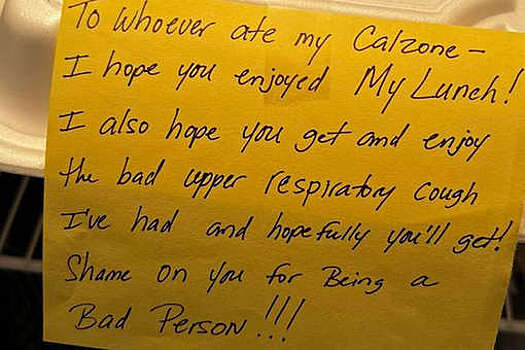 To Whoever ate my Calzone –
I hope you enjoyed My Lunch!
I also hope you get and enjoy
the bad upper respiratory cough
I've had and hopefully you'll get!
Shame on you for Being a
Bad Person!!!